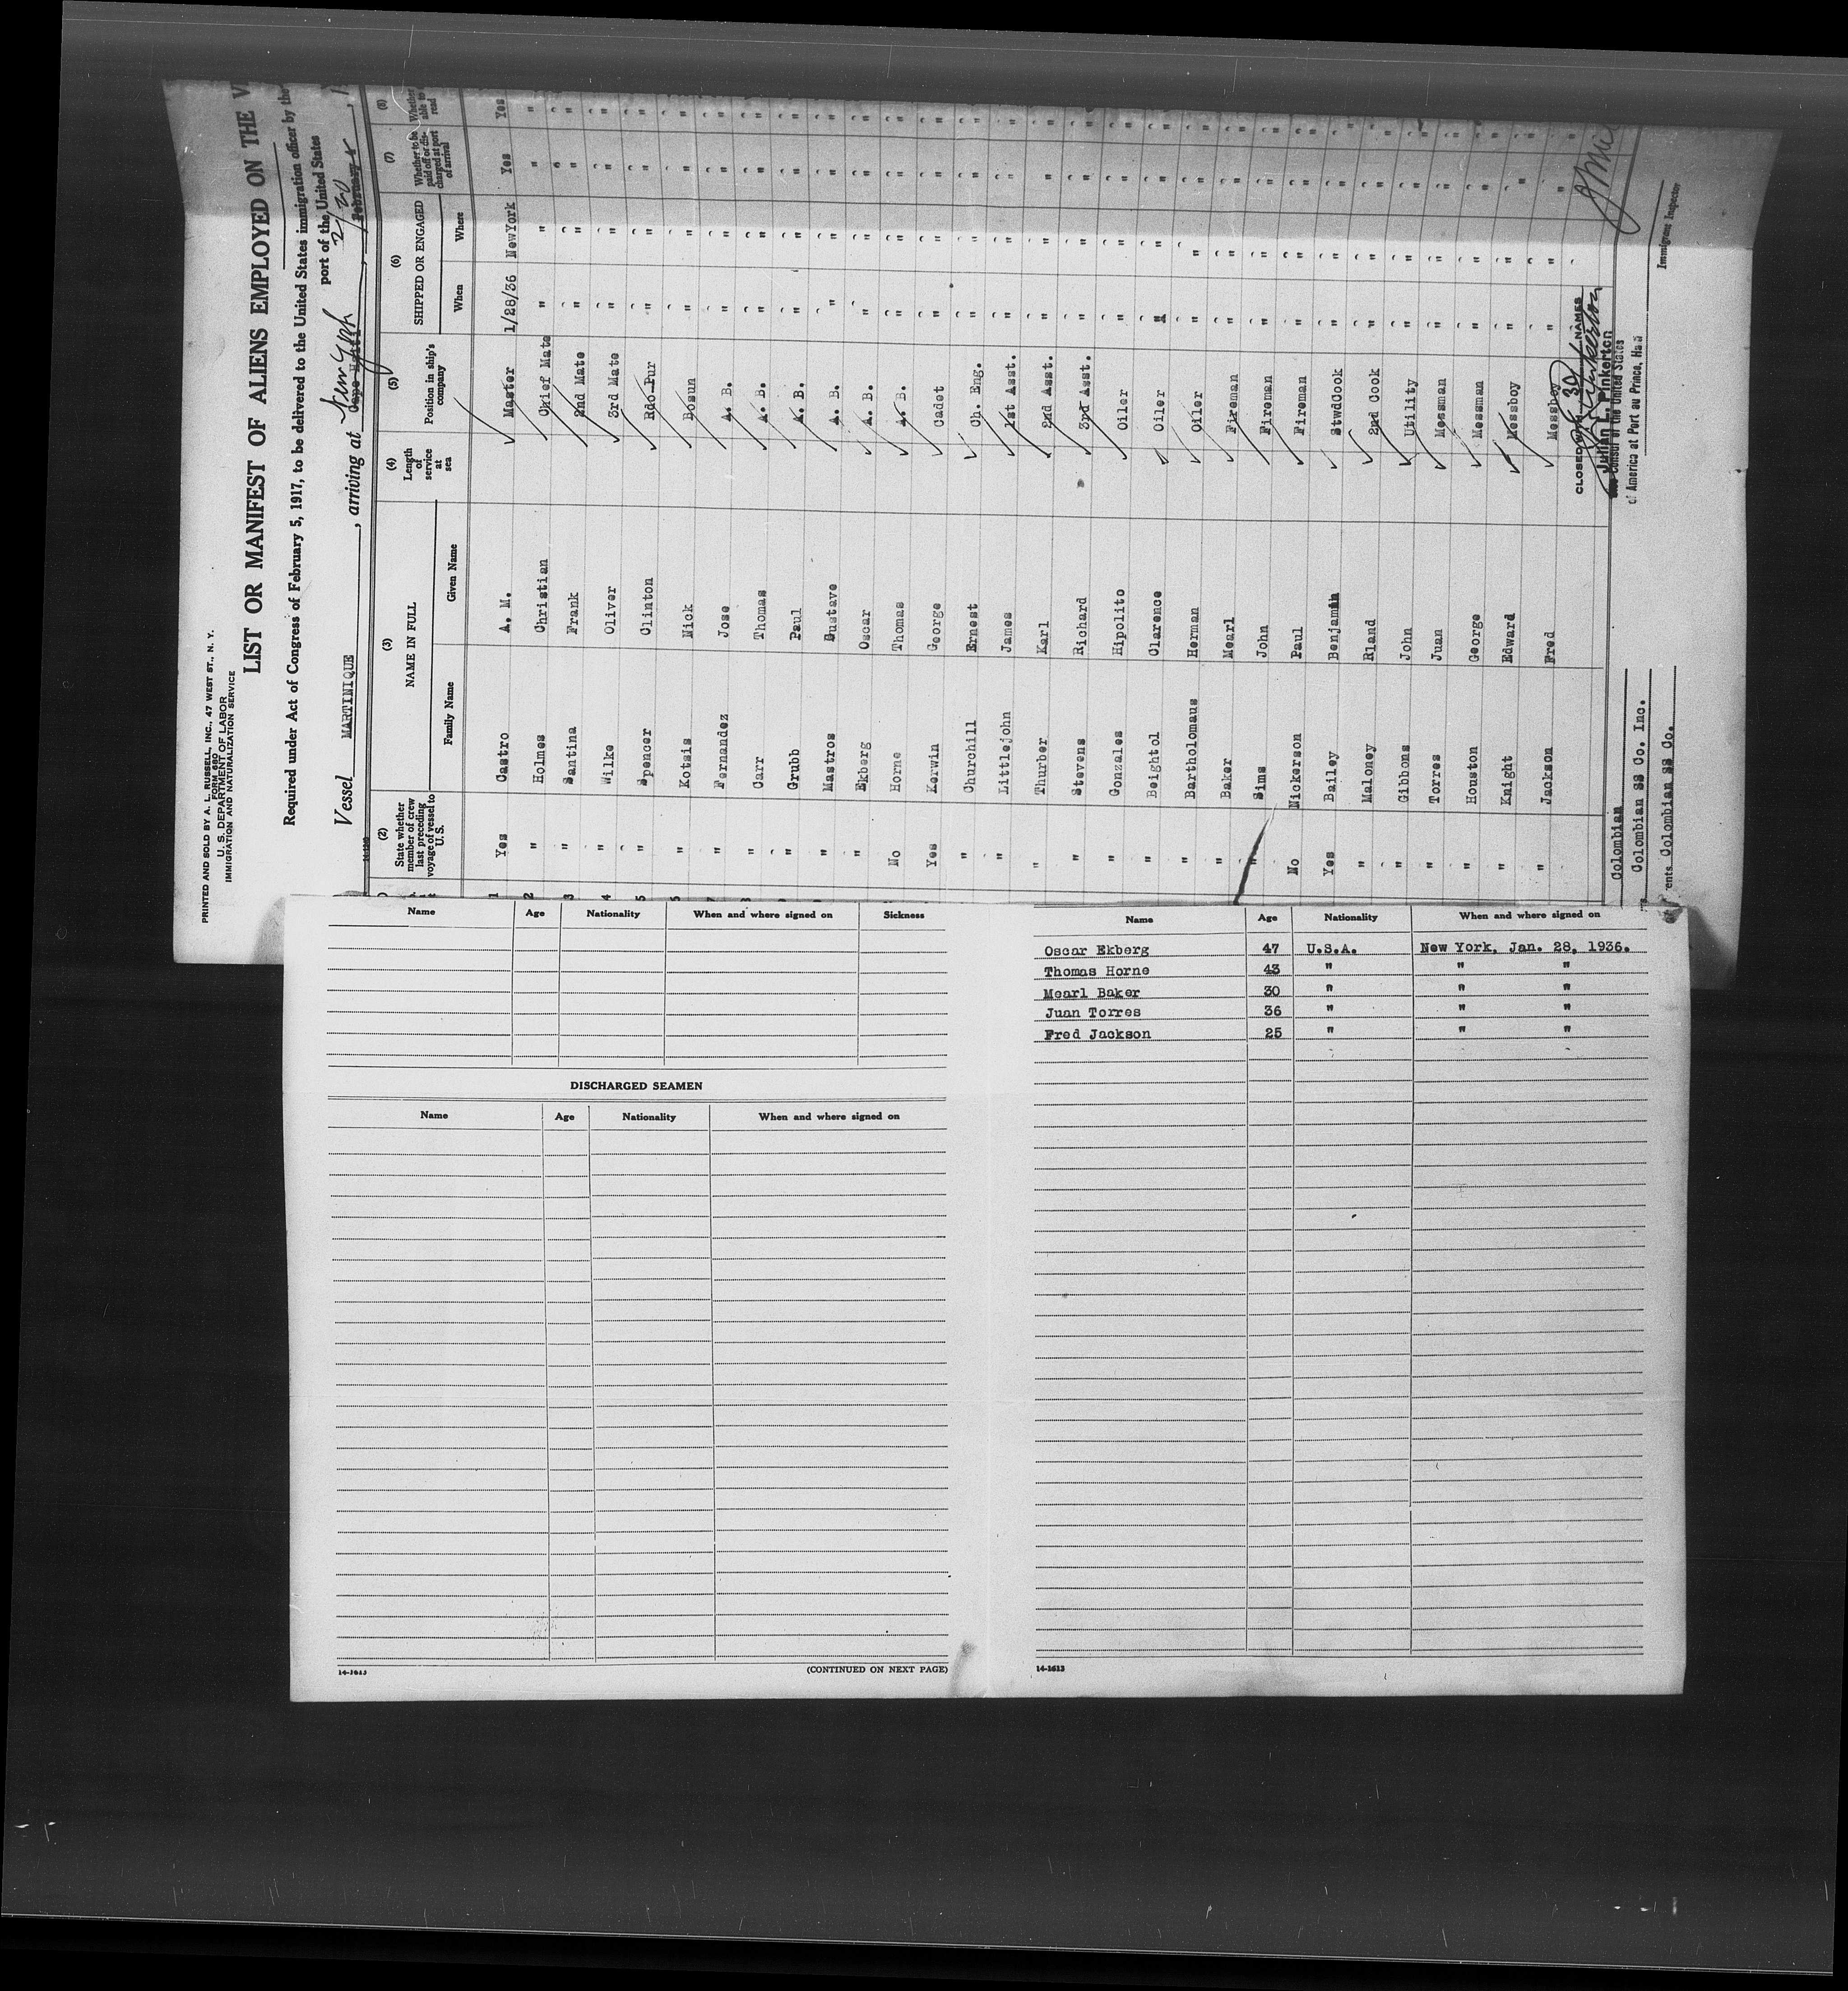 PRINTED AND SOLD BY A. L. RUSSELL, INC., 47 WEST ST., N. Y.
FORM 680
U. S. DEPARTMENT OF LABOR
IMMIGRATION AND NATURALIZATION SERVICE
LIST OR MANIFEST OF ALIENS EMPLOYED ON THE
Required under Act of Congress of February 5, 1917, to be delivered to the United States immigration officer by the
port of the United States
Vessel MARTINIQUE, arriving at New York, 2/20
Cape Haiti February
(2) (3) (4) (5) (6) (7) (8)
State whether member of crew last preceding voyage of vessel to U. S. NAME IN FULL Length of service at sea Position in ship's company SHIPPED OR ENGAGED Whether to be paid off or discharged at port of arrival Whether able to read
Family Name Given Name When Where
1 Yes Castro A. M. Master 1/28/36 NewYork Yes Yes
2 " Holmes Christian Chief Mate " " " "
3 " Santina Frank 2nd Mate " " " "
4 " Wilke Oliver 3rd Mate " " " "
5 " Spencer Clinton Rdo-Pur " " " "
" Kotsis Nick Bosun " " " "
" Fernandez Jose A. B. " " " "
" Carr Thomas A. B. " " " "
" Grubb Paul A. B. " " " "
" Mastros Gustave A. B. " " " "
" Ekberg Oscar A. B. " " " "
No Horne Thomas A. B. " " " "
Yes Kerwin George Cadet " " " "
" Churchill Ernest Ch. Eng. " " " "
" Littlejohn James 1st Asst. " " " "
" Thurber Karl 2nd Asst. " " " "
" Stevens Richard 3rd Asst. " " " "
" Gonzales Hipolito Oiler " " " "
" Beightol Clarence Oiler " " " "
" Bartholomaus Herman Oiler " " " "
" Baker Mearl Fireman " " " "
" Sims John Fireman " " " "
No Nickerson Paul Fireman " " " "
Yes Bailey Benjamin StwdCook " " " "
" Maloney Rland 2nd Cook " " " "
" Gibbons John Utility " " " "
" Torres Juan Messman " " " "
" Houston George Messman " " " "
" Knight Edward Messboy " " " "
" Jackson Fred Messboy " " " "
CLOSED WITH 30 NAMES
Julian L. Pinkerton
Vice Consul of the United States
of America at Port au Prince, Haiti
Colombian
Colombian SS Co. Inc.
ents Colombian SS Co.
Immigrant Inspector
Name Age Nationality When and where signed on Sickness
DISCHARGED SEAMEN
Name Age Nationality When and where signed on
14-1613
(CONTINUED ON NEXT PAGE)
Name Age Nationality When and where signed on
Oscar Ekberg 47 U.S.A. New York, Jan. 28, 1936.
Thomas Horne 43 " " "
Mearl Baker 30 " " "
Juan Torres 36 " " "
Fred Jackson 25 " " "
14-1613